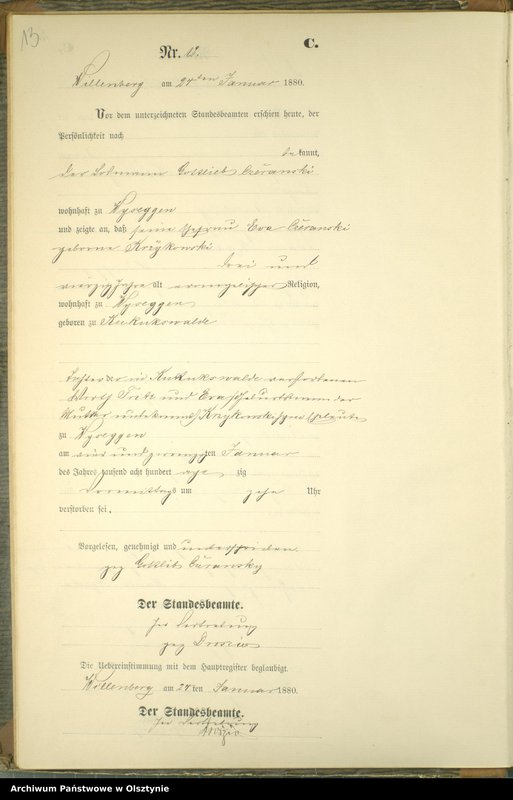 13
C.
Nr. 12.
Willenberg am 24ten Januar 1880.
Vor dem unterzeichneten Standesbeamten erschien heute, der
Persönlichkeit nach
bekannt,
der Losmann Gottlieb
wohnhaft zu Wyseggen
und zeigte an, daß seine Ehefrau Eva
geborene Krzykowski
drei und
vierzig Jahre alt evangelischer Religion,
wohnhaft zu Wyseggen
geboren zu Kukukswalde
Tochter der in Kukukswalde verstorbenen
Wirth und Eva (Geburtsname der
Mutter unbekannt) Krzykowskischen Eheleute
zu Wyseggen
am vier und zwanzigten Januar
des Jahres tausend acht hundert achtzig
Vormittags um zehn Uhr
verstorben sei.
Vorgelesen, genehmigt und unterschrieben.
gez Gottlieb
Der Standesbeamte.
In Vertretung
gez
Die Uebereinstimmung mit dem Hauptregister beglaubigt.
Willenberg am 24ten Januar 1880.
Der Standesbeamte.
In Vertretung
Archiwum Państwowe w Olsztynie